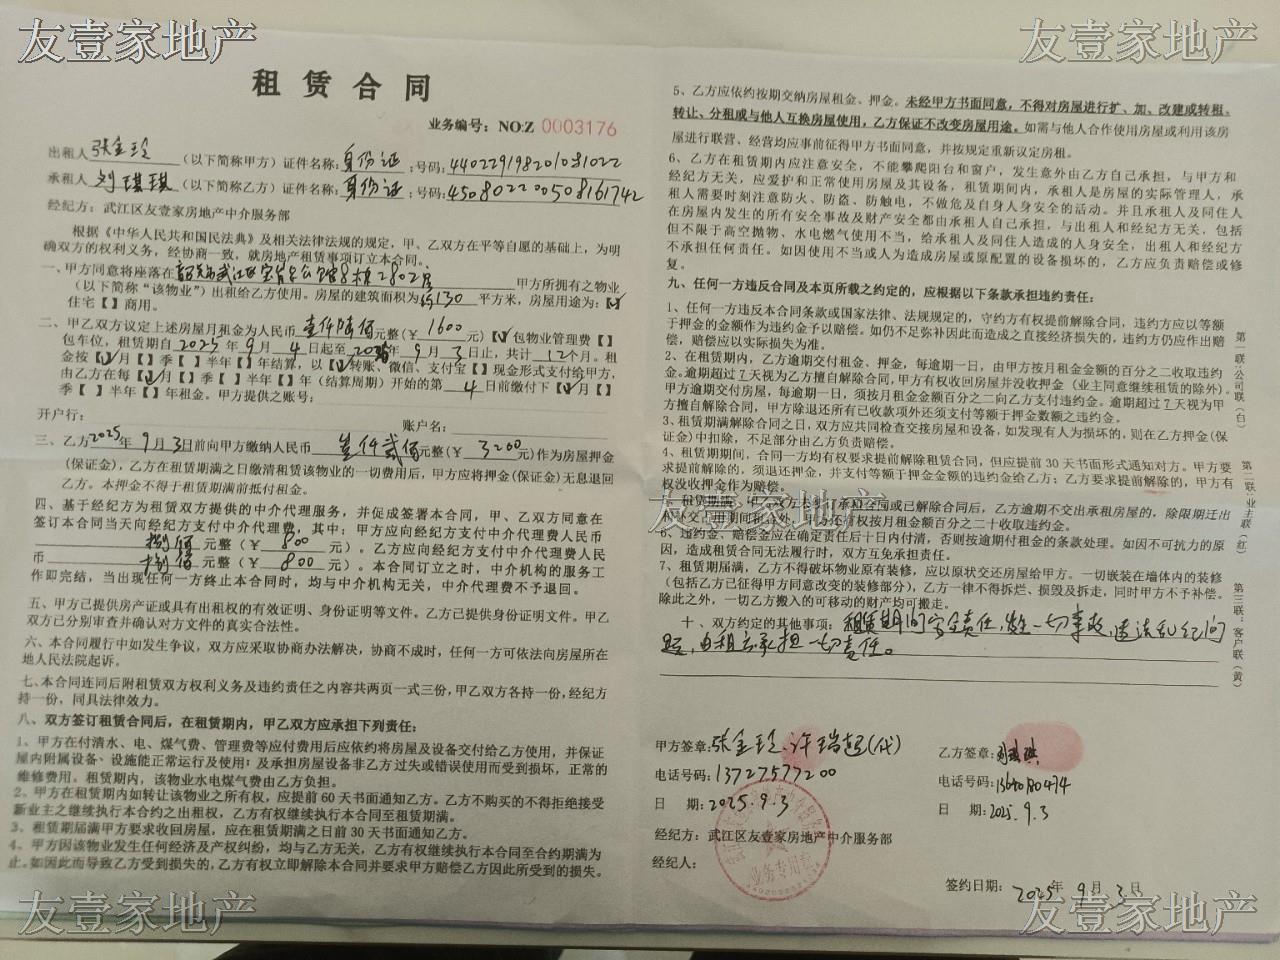 友壹家地产
友壹家地产
租赁合同
业务编号：NO:Z 0003176
出租人 张金玲 （以下简称甲方）证件名称：身份证；号码：440229198201081022
承租人 刘琪琪 （以下简称乙方）证件名称：身份证；号码：450802200508161742
经纪方：武江区友壹家房地产中介服务部
根据《中华人民共和国民法典》及相关法律法规的规定，甲、乙双方在平等自愿的基础上，为明
确双方的权利义务，经协商一致，就房地产租赁事项订立本合同。
一、甲方同意将座落在 韶关市武江区 公馆8栋2802房 甲方所拥有之物业
（以下简称“该物业”）出租给乙方使用。房屋的建筑面积为 约130 平方米，房屋用途为：【✓】
住宅【 】商用。
二、甲乙双方议定上述房屋月租金为人民币 壹仟陆佰 元整（￥ 1600 元）【✓】包物业管理费【 】
包车位，租赁期自 2025 年 9 月 4 日起至 年 9 月 3 日止，共计 12 个月。租
金按【✓】月【 】季【 】半年【 】年结算，以【✓】转账、微信、支付宝【 】现金形式支付给甲方，
由乙方在每【✓】月【 】季【 】半年【 】年（结算周期）开始的第 4 日前缴付下【✓】月【 】
季【 】半年【 】年租金。甲方提供之账号：
开户行： 账户名：
三、乙方 2025 年 9 月 3 日前向甲方缴纳人民币 叁仟贰佰 元整（￥ 3200 元）作为房屋押金
（保证金），乙方在租赁期满之日缴清租赁该物业的一切费用后，甲方应将押金（保证金）无息退回
乙方。本押金不得于租赁期满前抵付租金。
四、基于经纪方为租赁双方提供的中介代理服务，并促成签署本合同，甲、乙双方同意在
签订本合同当天向经纪方支付中介代理费，其中：甲方应向经纪方支付中介代理费人民币
捌佰 元整（￥ 800 元）。乙方应向经纪方支付中介代理费人民
币 捌佰 元整（￥ 800 元）。本合同订立之时，中介机构的服务工
作即完结，当出现任何一方终止本合同时，均与中介机构无关，中介代理费不予退回。
五、甲方已提供房产证或具有出租权的有效证明、身份证明等文件。乙方已提供身份证明文件。甲乙
双方已分别审查并确认对方文件的真实合法性。
六、本合同履行中如发生争议，双方应采取协商办法解决，协商不成时，任何一方可依法向房屋所在
地人民法院起诉。
七、本合同连同后附租赁双方权利义务及违约责任之内容共两页一式三份，甲乙双方各持一份，经纪方
持一份，同具法律效力。
八、双方签订租赁合同后，在租赁期内，甲乙双方应承担下列责任：
1、甲方在付清水、电、煤气费、管理费等应付费用后应依约将房屋及设备交付给乙方使用，并保证
屋内附属设备、设施能正常运行及使用；及承担房屋设备非乙方过失或错误使用而受到损坏，正常的
维修费用。租赁期内，该物业水电煤气费由乙方负担。
2、甲方在租赁期内如转让该物业之所有权，应提前60天书面通知乙方。乙方不购买的不得拒绝接受
新业主之继续执行本合约之出租权，乙方有权继续执行本合同至租赁期满。
3、租赁期届满甲方要求收回房屋，应在租赁期满之日前30天书面通知乙方。
4、甲方因该物业发生任何经济及产权纠纷，均与乙方无关，乙方有权继续执行本合同至合约期满为
止。如因此而导致乙方受到损失的，乙方有权立即解除本合同并要求甲方赔偿乙方因此所受到的损失。
5、乙方应依约按期交纳房屋租金、押金。未经甲方书面同意，不得对房屋进行扩、加、改建或转租、
转让、分租或与他人互换房屋使用，乙方保证不改变房屋用途。如需与他人合作使用房屋或利用该房
屋进行联营、经营均应事前征得甲方书面同意，并按规定重新议定房租。
6、乙方在租赁期内应注意安全，不能攀爬阳台和窗户，发生意外由乙方自己承担，与甲方和
经纪方无关，应爱护和正常使用房屋及其设备，租赁期间内，承租人是房屋的实际管理人，承
租人需要时刻注意防火、防盗、防触电，不做危及自身人身安全的活动。并且承租人及同住人
在房屋内发生的所有安全事故及财产安全都由承租人自己承担，与出租人和经纪方无关，包括
但不限于高空抛物、水电燃气使用不当，给承租人及同住人造成的人身安全，出租人和经纪方
不承担任何责任。如因使用不当或人为造成房屋或原配置的设备损坏的，乙方应负责赔偿或修
复。
九、任何一方违反合同及本页所载之约定的，应根据以下条款承担违约责任：
1、任何一方违反本合同条款或国家法律、法规规定的，守约方有权提前解除合同，违约方应以等额
于押金的金额作为违约金予以赔偿。如仍不足弥补因此而造成之直接经济损失的，违约方仍应作出赔
偿，赔偿应以实际损失为准。
2、在租赁期内，乙方逾期交付租金、押金，每逾期一日，由甲方按月租金金额的百分之二收取违约
金。逾期超过7天视为乙方擅自解除合同，甲方有权收回房屋并没收押金（业主同意继续租赁的除外）。
甲方逾期交付房屋，每逾期一日，须按月租金金额百分之二向乙方支付违约金。逾期超过7天视为甲
方擅自解除合同，甲方除退还所有已收款项外还须支付等额于押金数额之违约金。
3、租赁期满解除合同之日，双方应共同检查交接房屋和设备，如发现有人为损坏的，则在乙方押金（保
证金）中扣除，不足部分由乙方负责赔偿。
4、租赁期期间，合同一方均有权要求提前解除租赁合同，但应提前30天书面形式通知对方。甲方要
求提前解除的，须退还押金，并支付等额于押金金额的违约金给乙方；乙方要求提前解除的，甲方有
权没收押金作为赔偿。
友壹家地产
5、租赁期满，甲、乙双方未签订承租合同或已解除合同后，乙方逾期不交出承租房屋的，除限期迁出
租金外，甲方还有权按月租金额百分之二十收取违约金。
6、违约金、赔偿金应在确定责任后十日内付清，否则按逾期付租金的条款处理。如因不可抗力的原
因，造成租赁合同无法履行时，双方互免承担责任。
7、租赁期届满，乙方不得破坏物业原有装修，应以原状交还房屋给甲方。一切嵌装在墙体内的装修
（包括乙方已征得甲方同意改变的装修部分），乙方一律不得拆烂、损毁及拆走，同时甲方不予补偿。
除此之外，一切乙方搬入的可移动的财产均可搬走。
十、双方约定的其他事项：租赁期间安全责任，发生一切事故，违法乱纪问
题，由租方承担一切责任。
第一联：公司联（白）
第二联：业主联（红）
第三联：客户联（黄）
甲方签章：张金玲、许瑞超（代）
电话号码：13727577200
日 期：2025.9.3
经纪方：武江区友壹家房地产中介服务部
经纪人：
业务专用章
乙方签章：刘琪琪
电话号码：
日 期：2025.9.3
签约日期： 2025 年 9 月 3 日
友壹家地产
友壹家地产